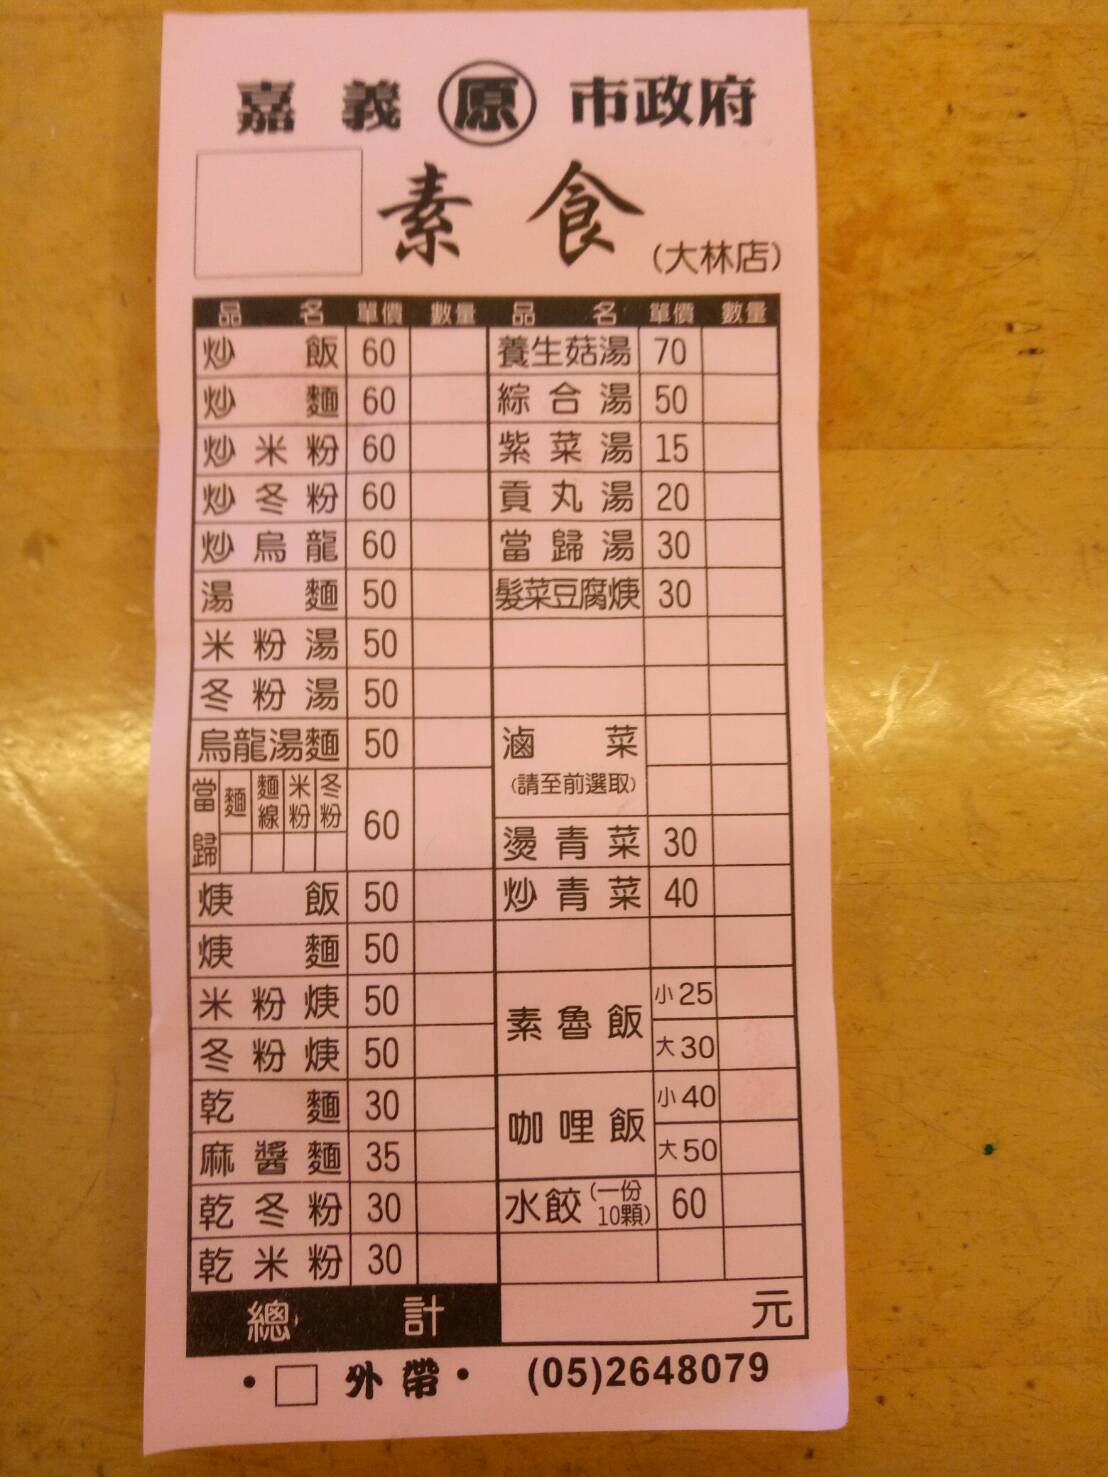 嘉義原市政府
素食
(大林店)
品名 單價 數量 品名 單價 數量
炒飯 60 養生菇湯 70
炒麵 60 綜合湯 50
炒米粉 60 紫菜湯 15
炒冬粉 60 貢丸湯 20
炒烏龍 60 當歸湯 30
湯麵 50 髮菜豆腐焿 30
米粉湯 50
冬粉湯 50
烏龍湯麵 50 滷菜
(請至前選取)
當歸 麵 麵線 米粉 冬粉 60
燙青菜 30
焿飯 50 炒青菜 40
焿麵 50
米粉焿 50 素魯飯 小25
冬粉焿 50 大30
乾麵 30 咖哩飯 小40
麻醬麵 35 大50
乾冬粉 30 水餃(一份10顆) 60
乾米粉 30
總計 元
•□外帶• (05)2648079